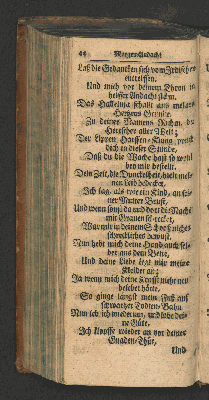 44 Morgen-Andacht
Laß die Gedancken sich vom Irdischen
entreissen,
Und mich vor deinem Thron in
heisser Andacht stehn.
Das Halleluja schallt aus meines
Hertzens Grunde,
Zu deines Namens Ruhm, du
Herrscher aller Welt;
Der Lippen Harffen-Klang
doch in dieser Stunde,
Daß du die Wache hast so wohl
bey mir bestellt.
Die Zeit, die Dunckelheit, hielt mei-
nen Leib bedecket,
Ich lag, als wie ein Kind, an sei-
ner Mutter Brust,
Und wenn sonst da und dort die Nacht
mit Grauen schrecket,
War mir in deinem Schooß nichts
schreckliches bewust.
Nun hebt mich deine Hand auch sel-
ber aus dem Bette,
Und deine Liebe legt mir meine
Kleider an;
Ja wenn mich deine Krafft nicht neu
belebet hätte,
So gienge längst mein Fuß auf
schwartzer Todten-Bahn.
Nun leb ich wiederum, und lobe dei-
ne Güte,
Ich klopffe wieder an vor deiner
Gnaden-Thür,
Und